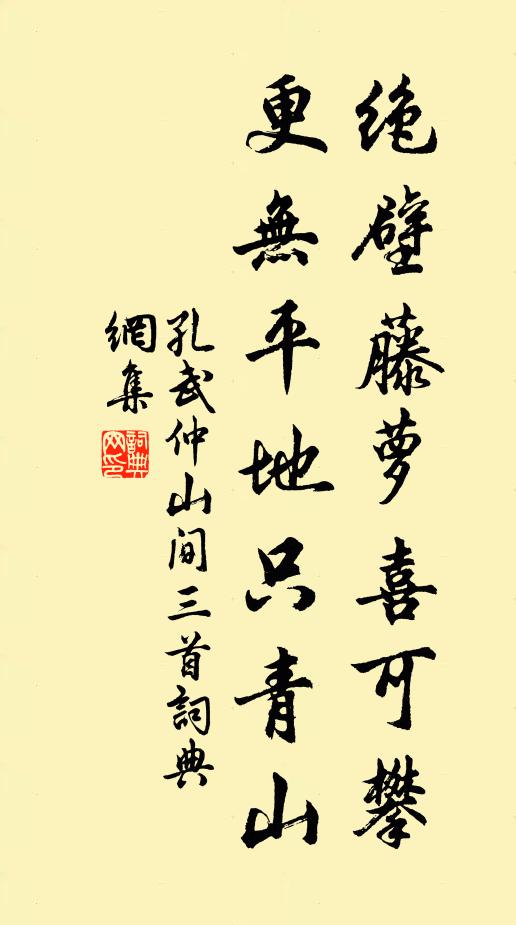 绝壁藤萝喜可攀
更無平地只青山
孔武仲山间三首詞典
網集
詞典網印